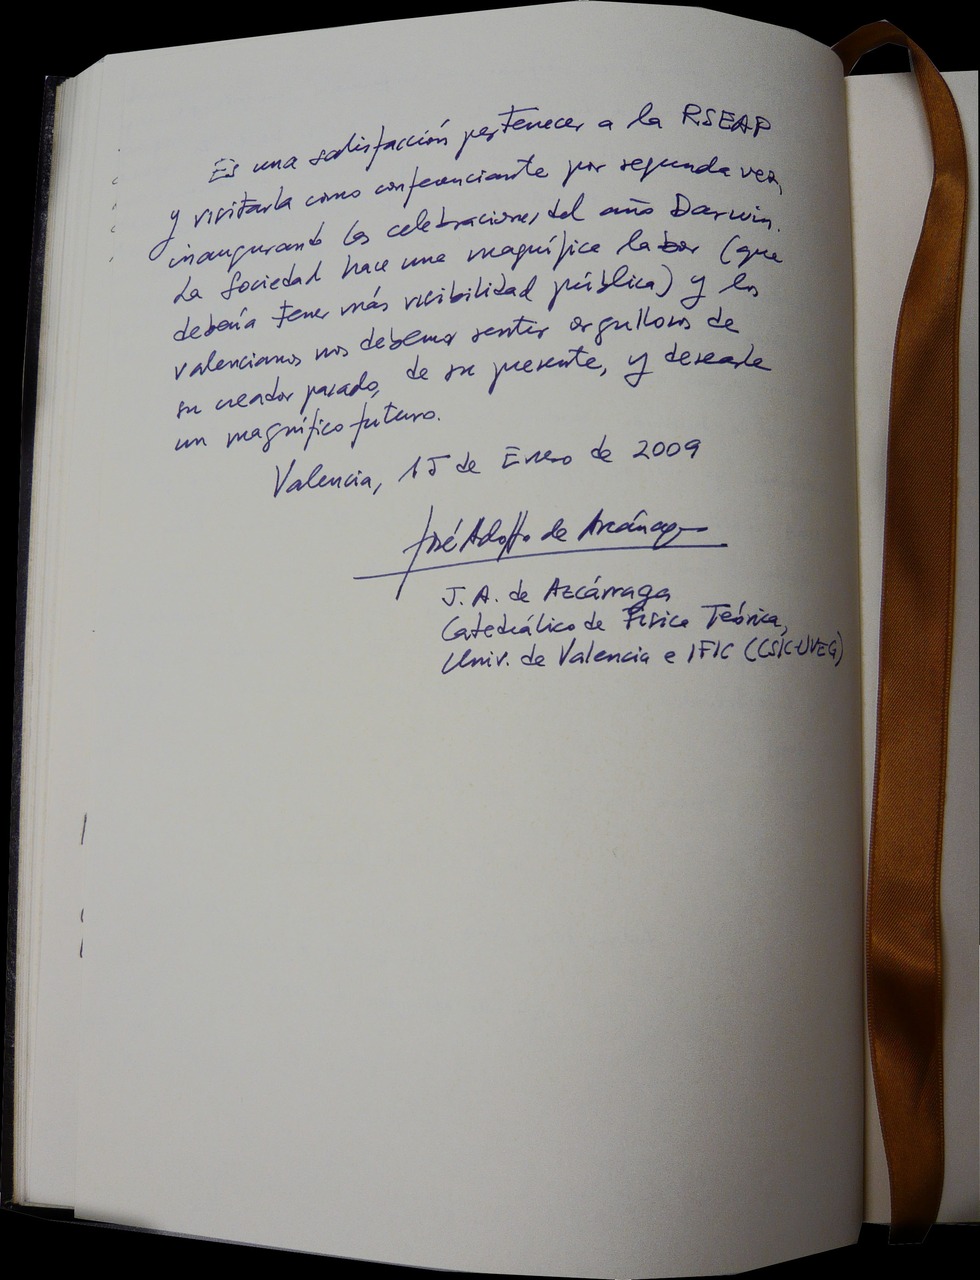 Es una satisfacción pertenecer a la RSEAP
y visitarla como conferenciante por segunda vez,
inaugurando las celebraciones del año Darwin.
La Sociedad hace una magnífica labor (que
debería tener más visibilidad pública) y los
valencianos nos debemos sentir orgullosos de
su creador pasado, de su presente, y desearle
un magnífico futuro.
Valencia, 15 de Enero de 2009
José Adolfo de Azcárraga
J. A. de Azcárraga
Catedrático de Física Teórica,
Univ. de Valencia e IFIC (CSIC-UVEG)